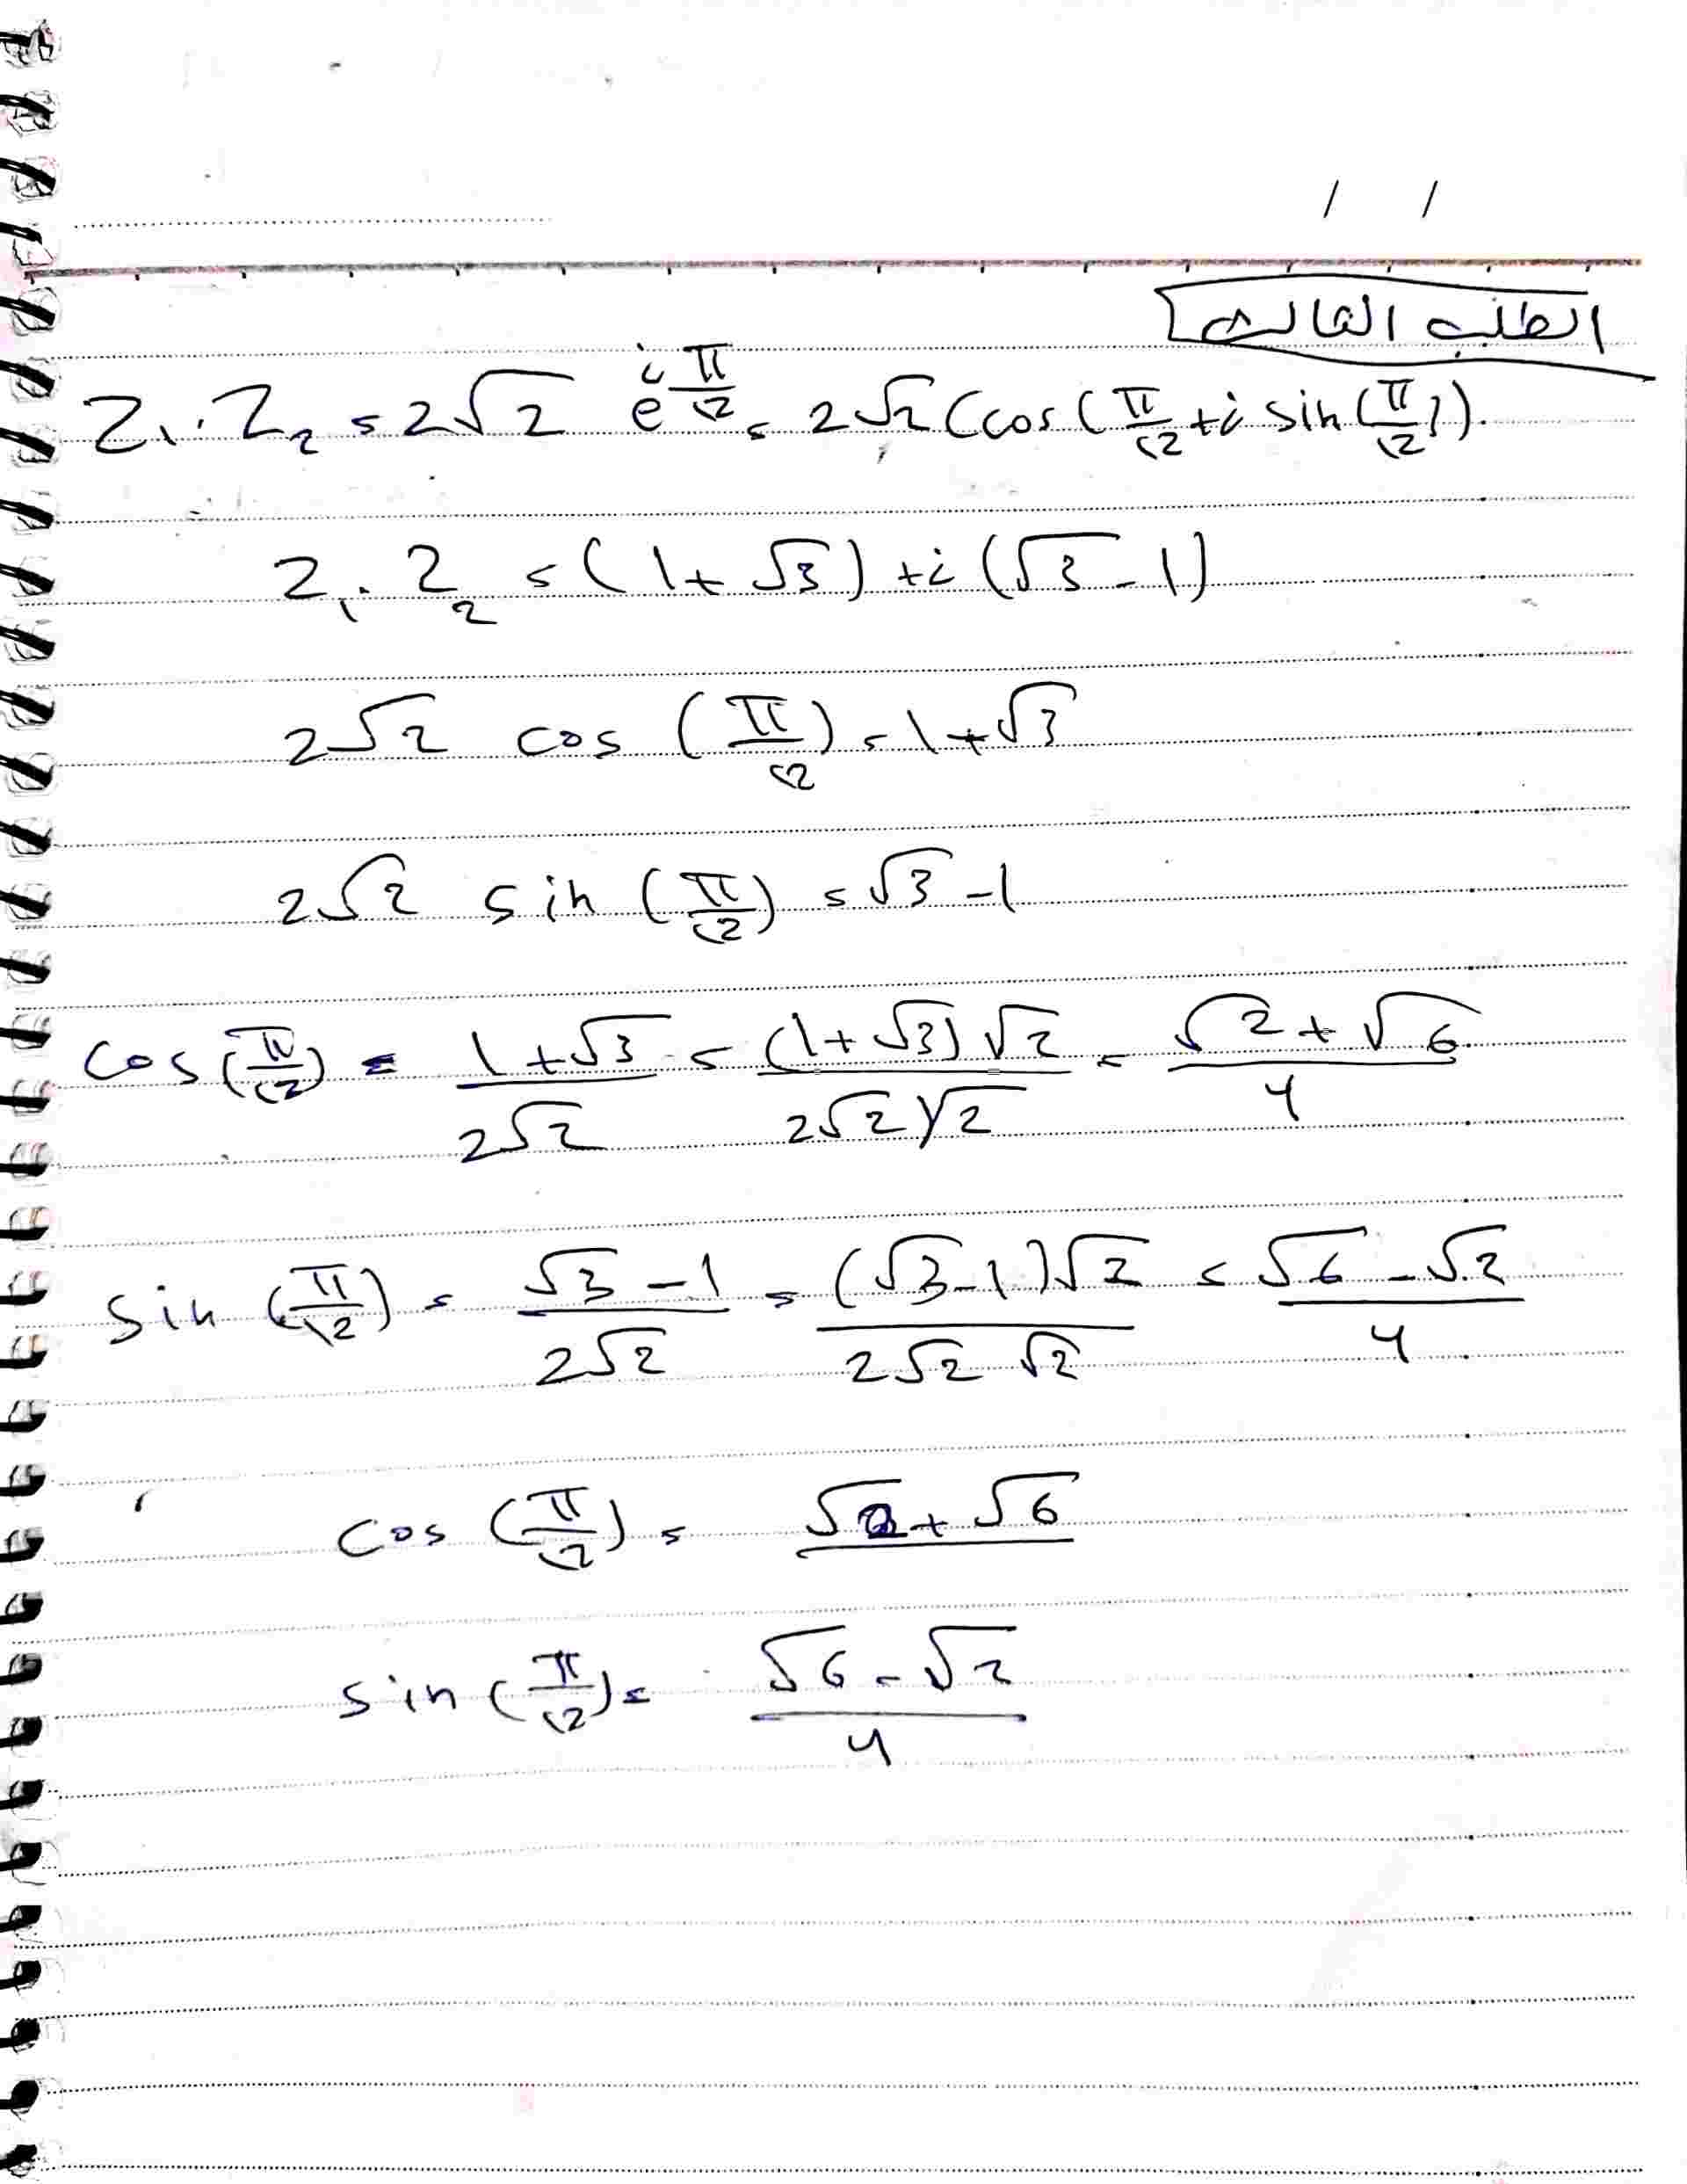 / /
الطلب الثالث
Z₁ . Z₂ = 2√2 e^(i π/12) = 2√2 (cos(π/12 + i sin(π/12)).
Z₁ . Z₂ = (1 + √3) + i (√3 - 1)
2√2 cos (π/12) = 1 + √3
2√2 sin (π/12) = √3 - 1
cos (π/12) = (1 + √3)/(2√2) = ((1 + √3)√2)/(2√2 √2) = (√2 + √6)/4
sin (π/12) = (√3 - 1)/(2√2) = ((√3 - 1)√2)/(2√2 √2) = (√6 - √2)/4
cos (π/12) = √2 + √6
sin (π/12) = (√6 - √2)/4